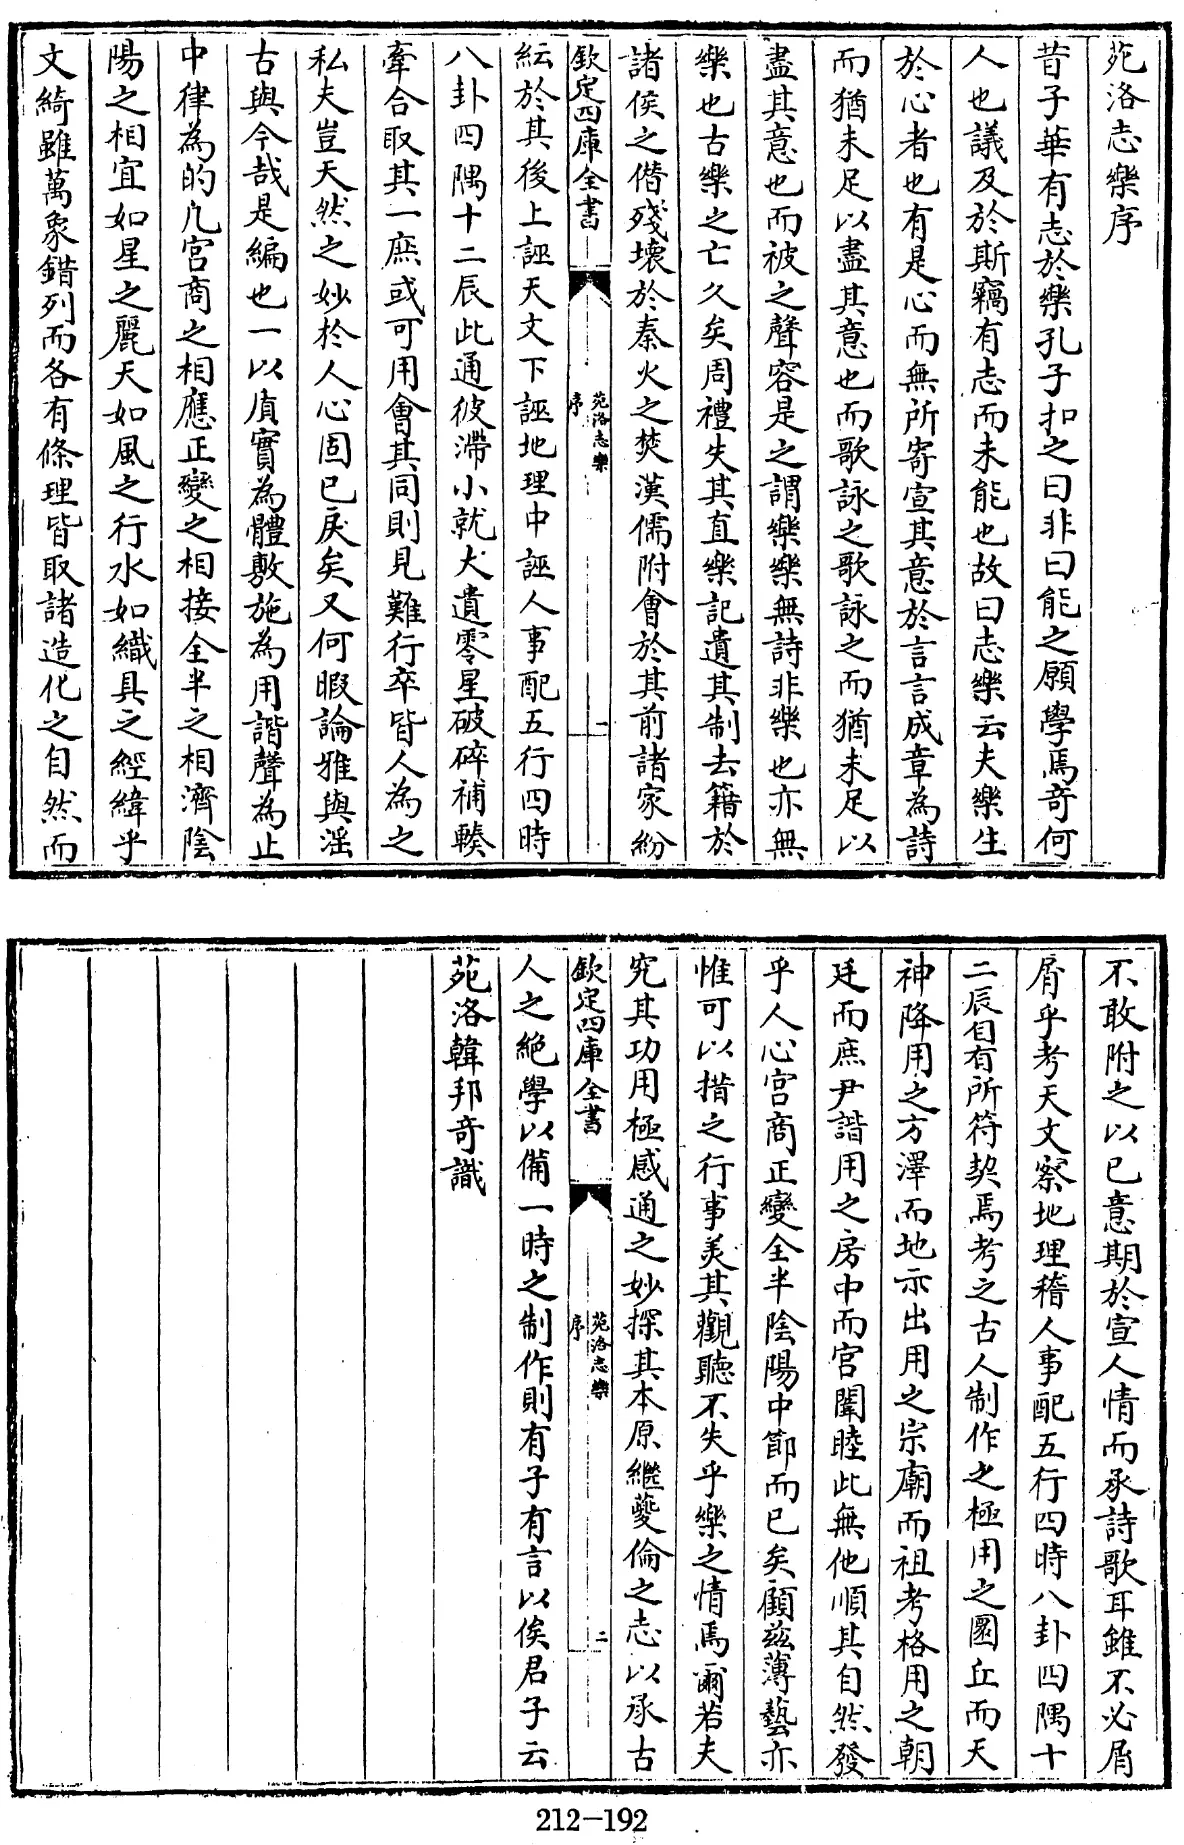 苑洛志樂序
昔子華有志於樂孔子扣之曰非曰能之願學焉奇何
人也議及於斯竊有志而未能也故曰志樂云夫樂生
於心者也有是心而無所寄宣其意於言言成章為詩
而猶未足以盡其意也而歌詠之歌詠之而猶未足以
盡其意也而被之聲容是之謂樂樂無詩非樂也亦無
樂也古樂之亡久矣周禮失其直樂記遺其制去籍於
諸侯之僭殘壞於秦火之焚漢儒附會於其前諸家紛
欽定四庫全書
苑洛志樂
序
一
紜於其後上誣天文下誣地理中誣人事配五行四時
八卦四隅十二辰此通彼滯小就大遺零星破碎補輳
牽合取其一庶或可用會其同則見難行卒皆人為之
私夫豈天然之妙於人心固已戾矣又何暇論雅與淫
古與今哉是編也一以質實為體敷施為用諧聲為止
中律為的凡宮商之相應正變之相接全半之相濟陰
陽之相宜如星之麗天如風之行水如織具之經緯乎
文綺雖萬象錯列而各有條理皆取諸造化之自然而
不敢附之以已意期於宣人情而承詩歌耳雖不必屑
屑乎考天文察地理稽人事配五行四時八卦四隅十
二辰自有所符契焉考之古人制作之極用之圜丘而天
神降用之方澤而地示出用之宗廟而祖考格用之朝
廷而庶尹諧用之房中而宮闈睦此無他順其自然發
乎人心宮商正變全半陰陽中節而已矣顧茲薄藝亦
惟可以措之行事美其觀聽不失乎樂之情焉爾若夫
究其功用極感通之妙探其本原繼夔倫之志以承古
欽定四庫全書
苑洛志樂
序
二
人之絕學以備一時之制作則有子有言以俟君子云
苑洛韓邦奇識
212-192